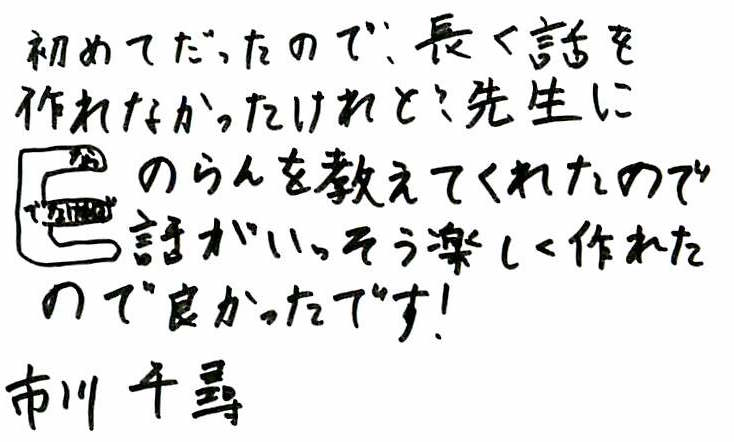 初めてだったので、長く話を
作れなかったけれど、先生に
なら
でなければ
のらんを教えてくれたので
話がいっそう楽しく作れた
ので良かったです!
市川 千尋